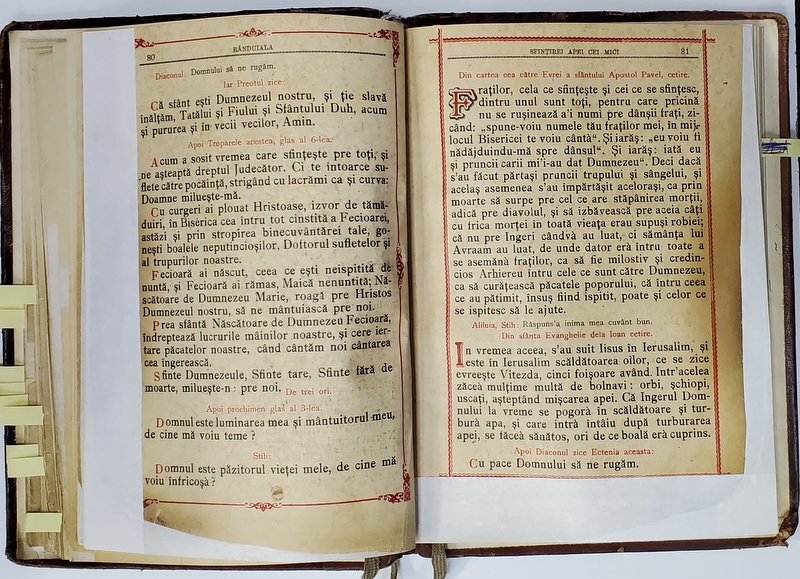 80
RÂNDUIALA
Diaconul: Domnului să ne rugăm.
Iar Preotul zice:
Că sfânt ești Dumnezeul nostru, și ție slavă
înălțăm, Tatălui și Fiului și Sfântului Duh, acum
și pururea și în vecii vecilor, Amin.
Apoi Troparele acestea, glas al 6-lea.
Acum a sosit vremea care sfințește pre toți, și
ne așteaptă dreptul Judecător. Ci te întoarce su-
flete către pocăință, strigând cu lacrămi ca și curva:
Doamne miluește-mă.
Cu curgeri ai plouat Hristoase, izvor de tămă-
duiri, în Biserica cea întru tot cinstită a Fecioarei,
astăzi și prin stropirea binecuvântărei tale, go-
nești boalele neputincioșilor, Doftorul sufletelor și
al trupurilor noastre.
Fecioară ai născut, ceea ce ești neispitită de
nuntă, și Fecioară ai rămas, Maică nenuntită; Nă-
scătoare de Dumnezeu Marie, roagă pre Hristos
Dumnezeul nostru, să ne mântuiască pre noi.
Prea sfântă Născătoare de Dumnezeu Fecioară,
îndreptează lucrurile mâinilor noastre, și cere ier-
tare păcatelor noastre, când cântăm noi cântarea
cea îngerească.
Sfinte Dumnezeule, Sfinte tare, Sfinte fără de
moarte, miluește-n pre noi. De trei ori.
Apoi prochimen glas al 3-lea.
Domnul este luminarea mea și mântuitorul meu,
de cine mă voiu teme?
Stih:
Domnul este păzitorul vieței mele, de cine mă
voiu înfricoșà?
SFINȚIREI APEI CEI MICI
81
Din cartea cea către Evrei a sfântului Apostol Pavel, cetire.
Fraților, cela ce sfințește și cei ce se sfințesc,
dintru unul sunt toți, pentru care pricină
nu se rușinează a'i numi pre dânșii frați, zi-
când: „spune-voiu numele tău fraților mei, în mij-
locul Bisericei te voiu cântà“. Și iarăș: „eu voiu fi
nădăjduindu-mă spre dânsul“. Și iarăș: iată eu
și pruncii carii mi'i-au dat Dumnezeu“. Deci dacă
s'au făcut părtași pruncii trupului și sângelui, și
acelaș asemenea s'au împărtășit acelorași, ca prin
moarte să surpe pre cel ce are stăpânirea morții,
adică pre diavolul, și să izbăvească pre aceia câți
cu frica morței în toată vieața erau supuși robiei;
că nu pre Ingeri cândvà au luat, ci sămânța lui
Avraam au luat, de unde dator erà întru toate a
se asemănà fraților, ca să fie milostiv și credin-
cios Arhiereu întru cele ce sunt către Dumnezeu,
ca să curățească păcatele poporului, că întru ceea
ce au pătimit, însuș fiind ispitit, poate și celor ce
se ispitesc să le ajute.
Aliluia, Stih: Răspuns'a inima mea cuvânt bun.
Din sfânta Evanghelie dela Ioan cetire.
In vremea aceea, s'au suit Iisus în Ierusalim, și
este în Ierusalim scăldătoarea oilor, ce se zice
evreește Vitezda, cinci foișoare având. Intr'acelea
zăceà mulțime multă de bolnavi: orbi, șchiopi,
uscați, așteptând mișcarea apei. Că Ingerul Dom-
nului la vreme se pogorà în scăldătoare și tur-
burà apa, și care intrà întâiu după turburarea
apei, se făceà sănătos, ori de ce boală erà cuprins.
Apoi Diaconul zice Ectenia aceasta:
Cu pace Domnului să ne rugăm.